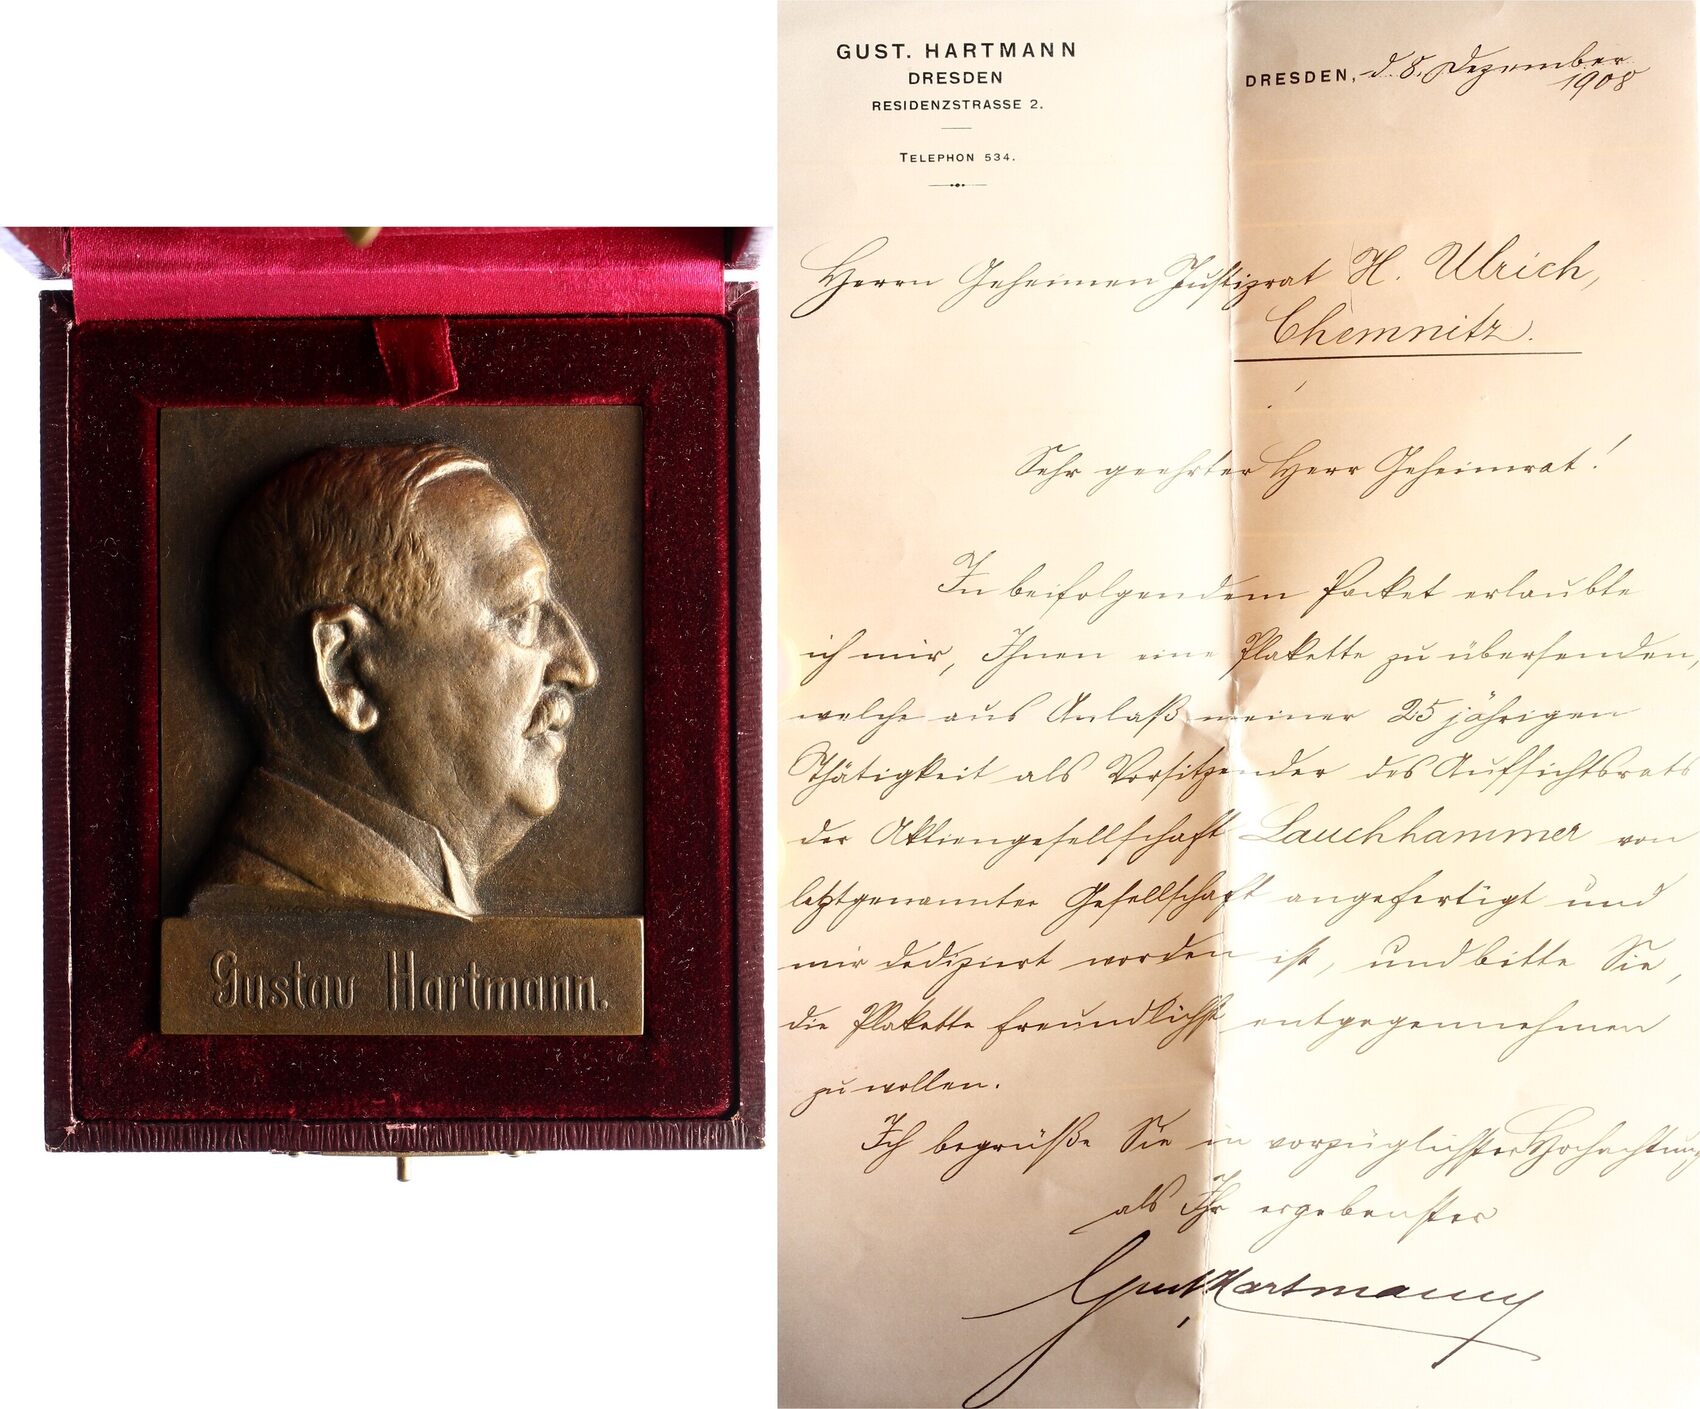 Gustav Hartmann.
GUST. HARTMANN
DRESDEN
RESIDENZSTRASSE 2.
TELEPHON 534.
DRESDEN, d. 8. Dezember
1908
Herrn Geheimen Justizrat H. Ulrich,
Chemnitz.
Sehr geehrter Herr Geheimrat!
In beifolgendem Packet erlaubte
ich mir, Ihnen eine Plakette zu übersenden,
welche aus Anlaß meiner 25 jährigen
Thätigkeit als Vorsitzender des Aufsichtsrats
der Aktiengesellschaft Lauchhammer von
letztgenannter Gesellschaft angefertigt und
mir dediziert worden ist, und bitte Sie,
die Plakette freundlichst entgegennehmen
zu wollen.
Ich begrüße Sie in vorzüglichster Hochachtung
als Ihr ergebenster
Gust. Hartmann